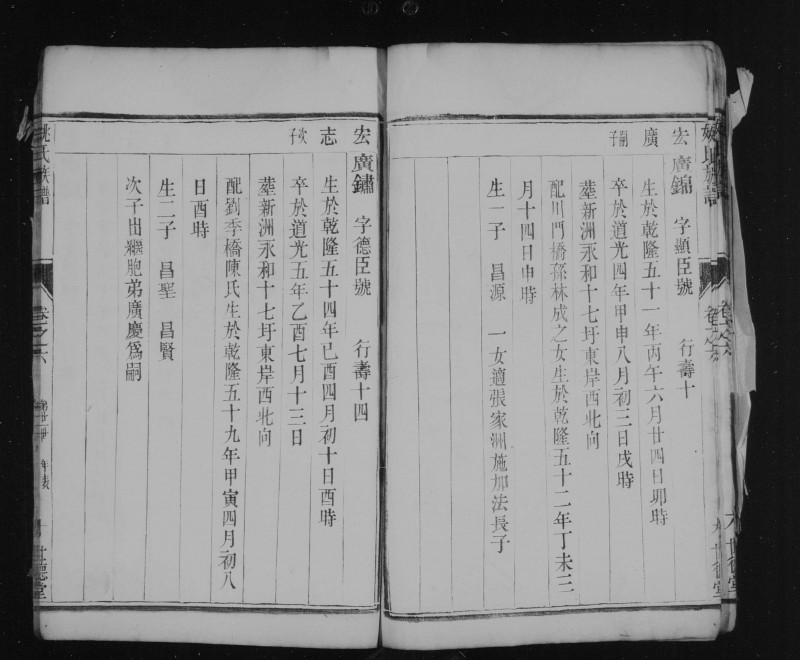 宏 廣錦 字顯臣號 行壽十
廣 生於乾隆五十一年丙午六月廿四日卯時
嗣子 卒於道光四年甲申八月初三日戌時
塟新洲永和十七圩東岸西北向
配川門橋孫林成之女生於乾隆五十二年丁未三
月十四日申時
生一子 昌源 一女適張家洲施加法長子
宏 廣鏽 字德臣號 行壽十四
志 生於乾隆五十四年己酉四月初十日酉時
次子 卒於道光五年乙酉七月十三日
塟新洲永和十七圩東岸西北向
配劉季橋陳氏生於乾隆五十九年甲寅四月初八
日酉時
生二子 昌聖 昌賢
次子出繼胞弟廣慶爲嗣
姚氏族譜 卷之六 世德堂